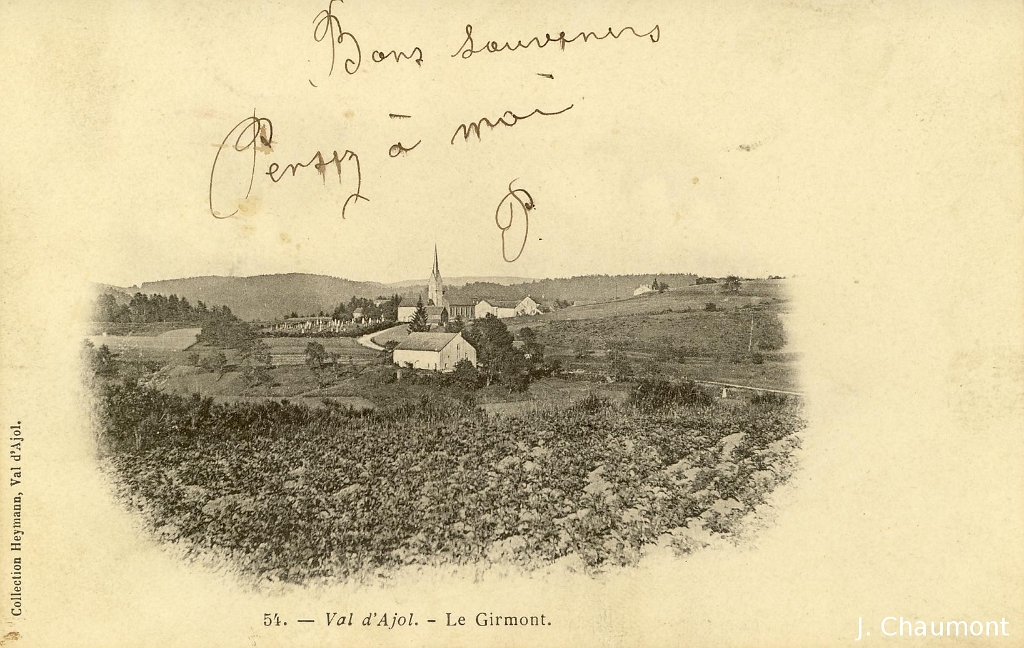 Bons souvenirs
Pensez à moi
P.
Collection Heymann, Val d'Ajol.
54. — Val d'Ajol. - Le Girmont.
J. Chaumont